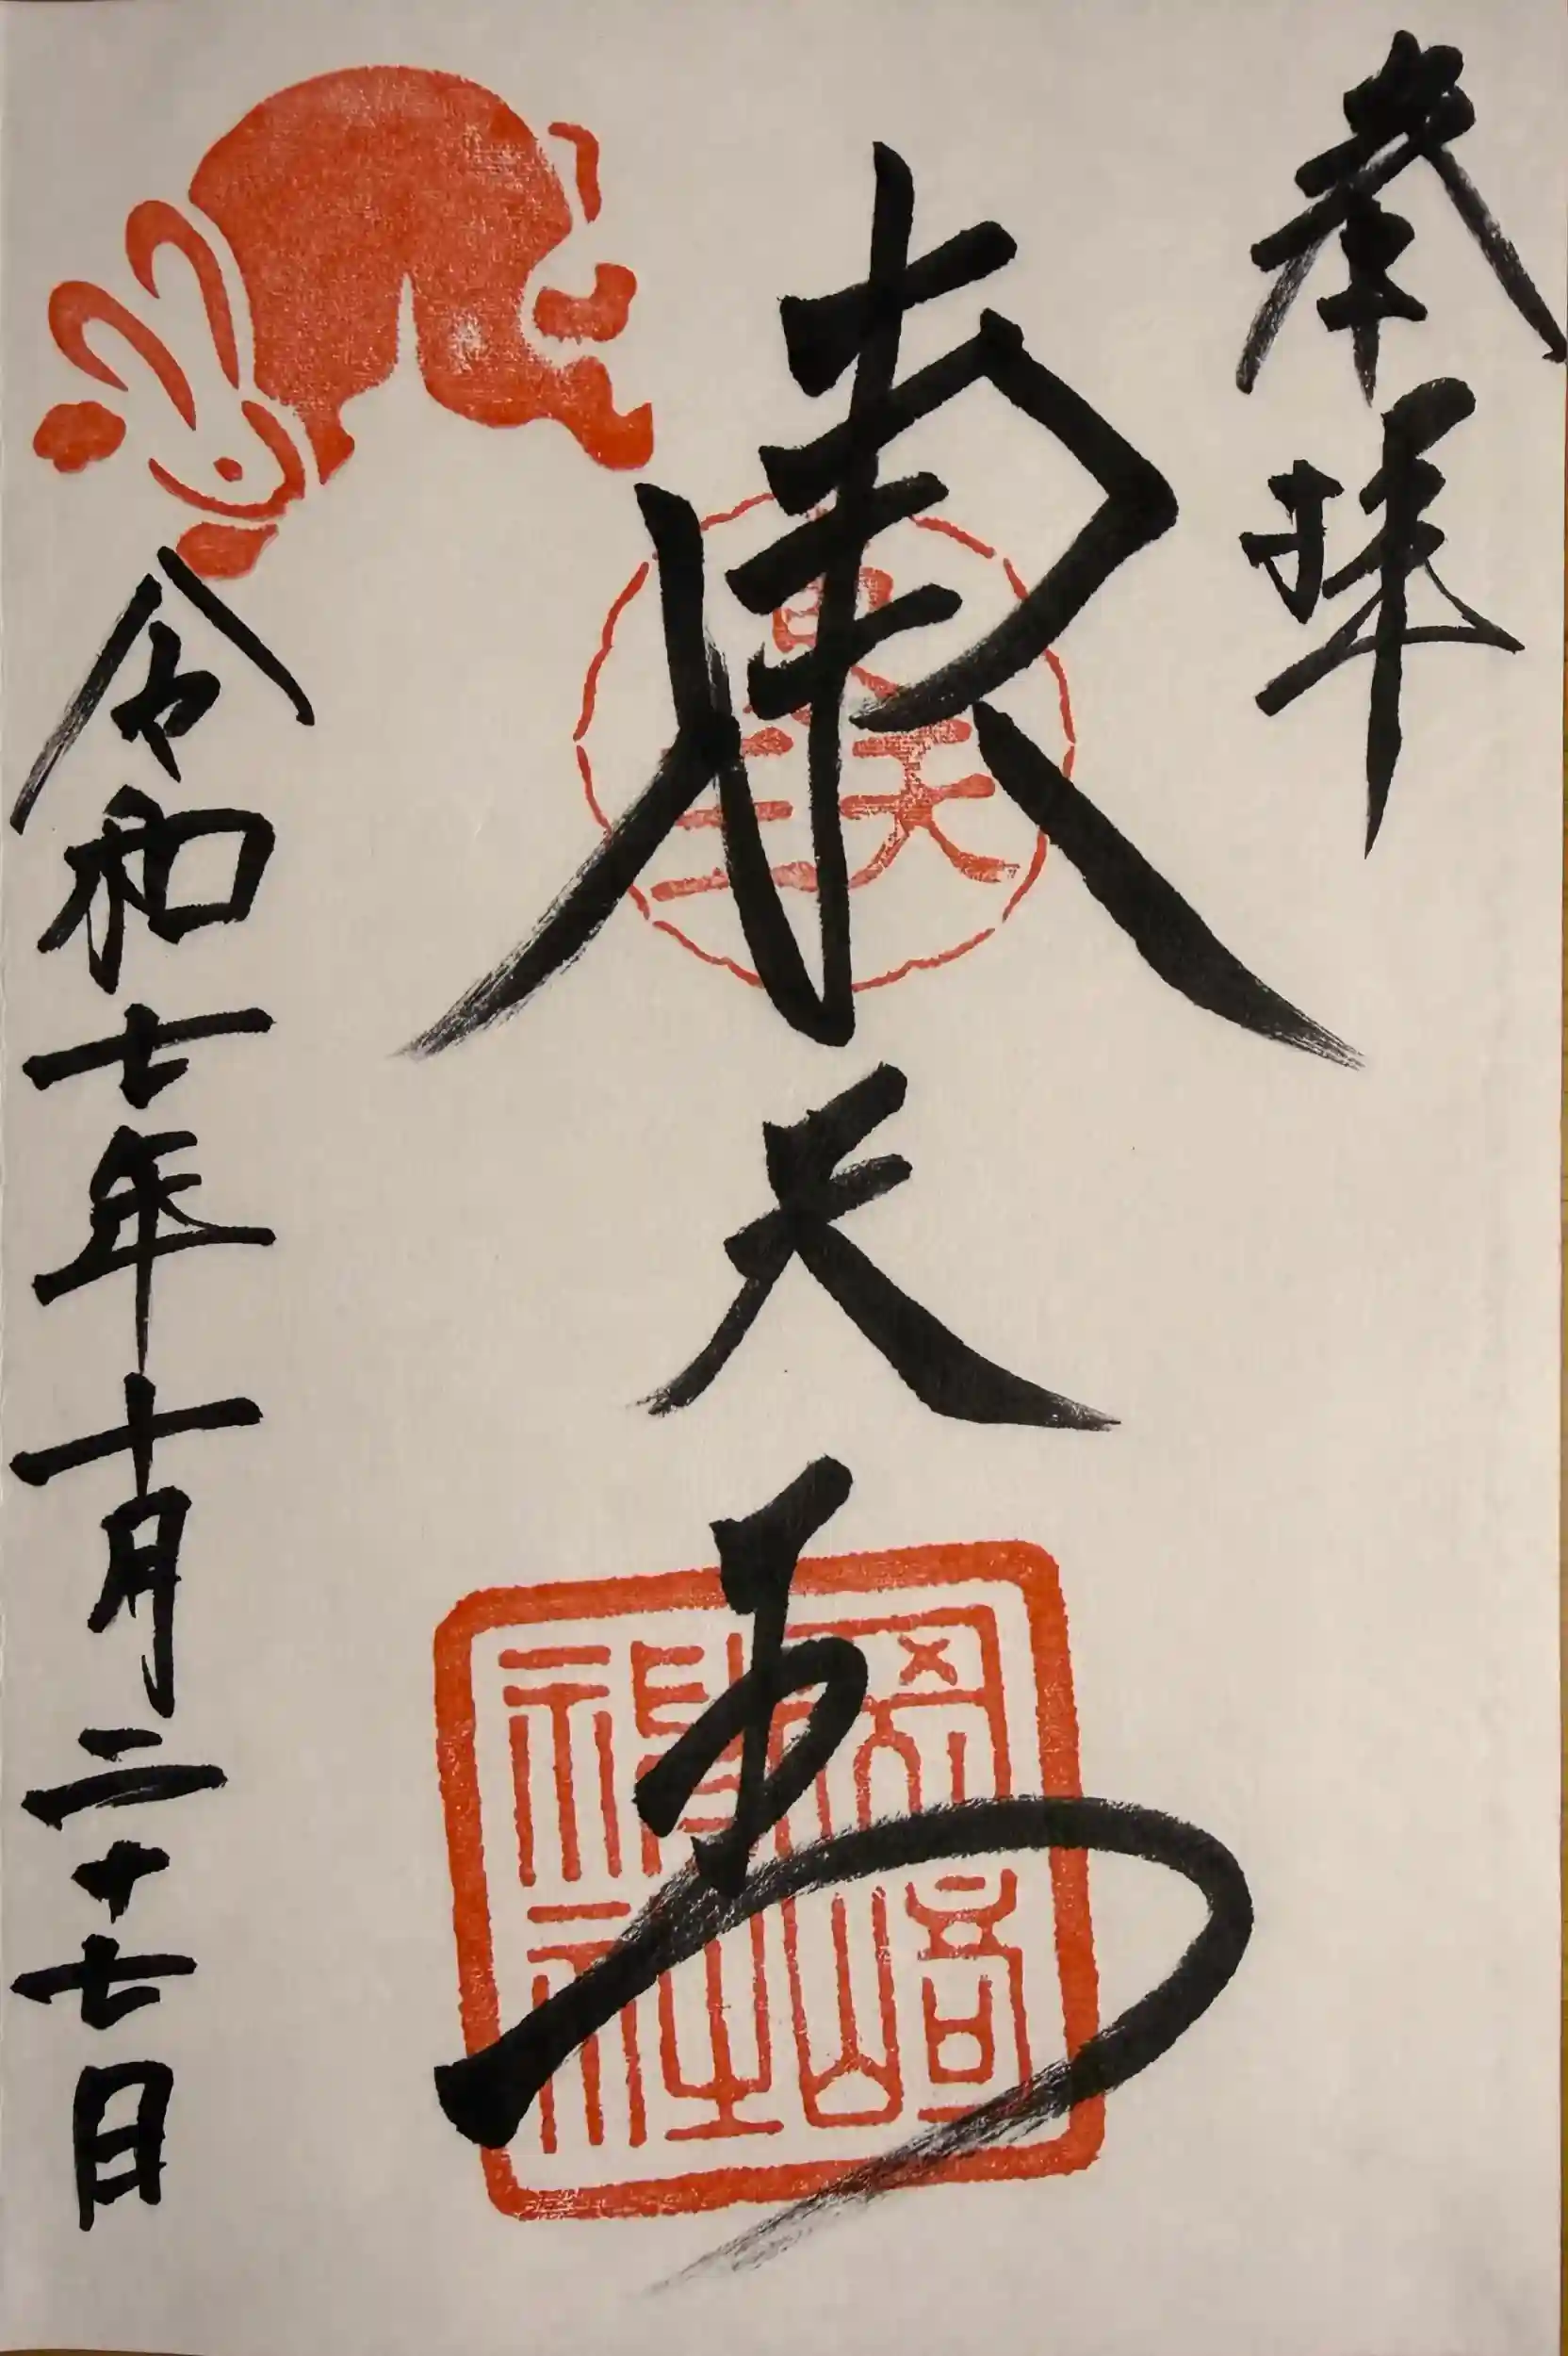 奉拝
東天王
東天王
岡崎神社
令和七年十月二十七日